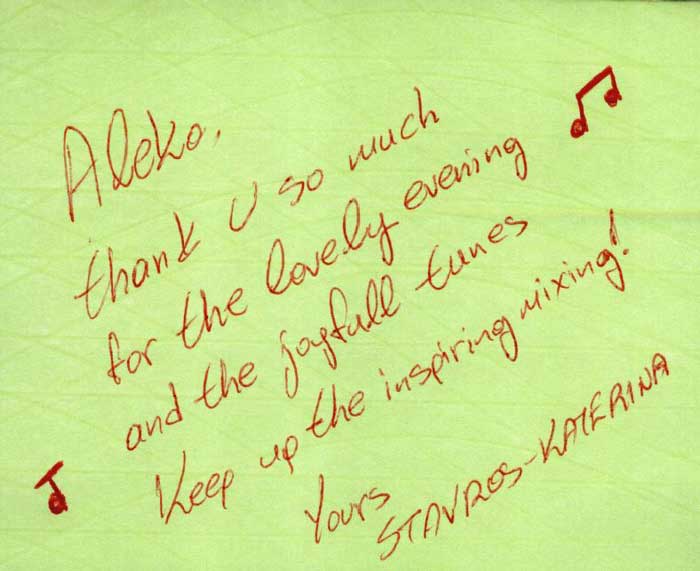 Aleko,
thank U so much
for the lovely evening
and the joyfull tunes
Keep up the inspiring mixing!
Yours
STAVROS-KATERINA